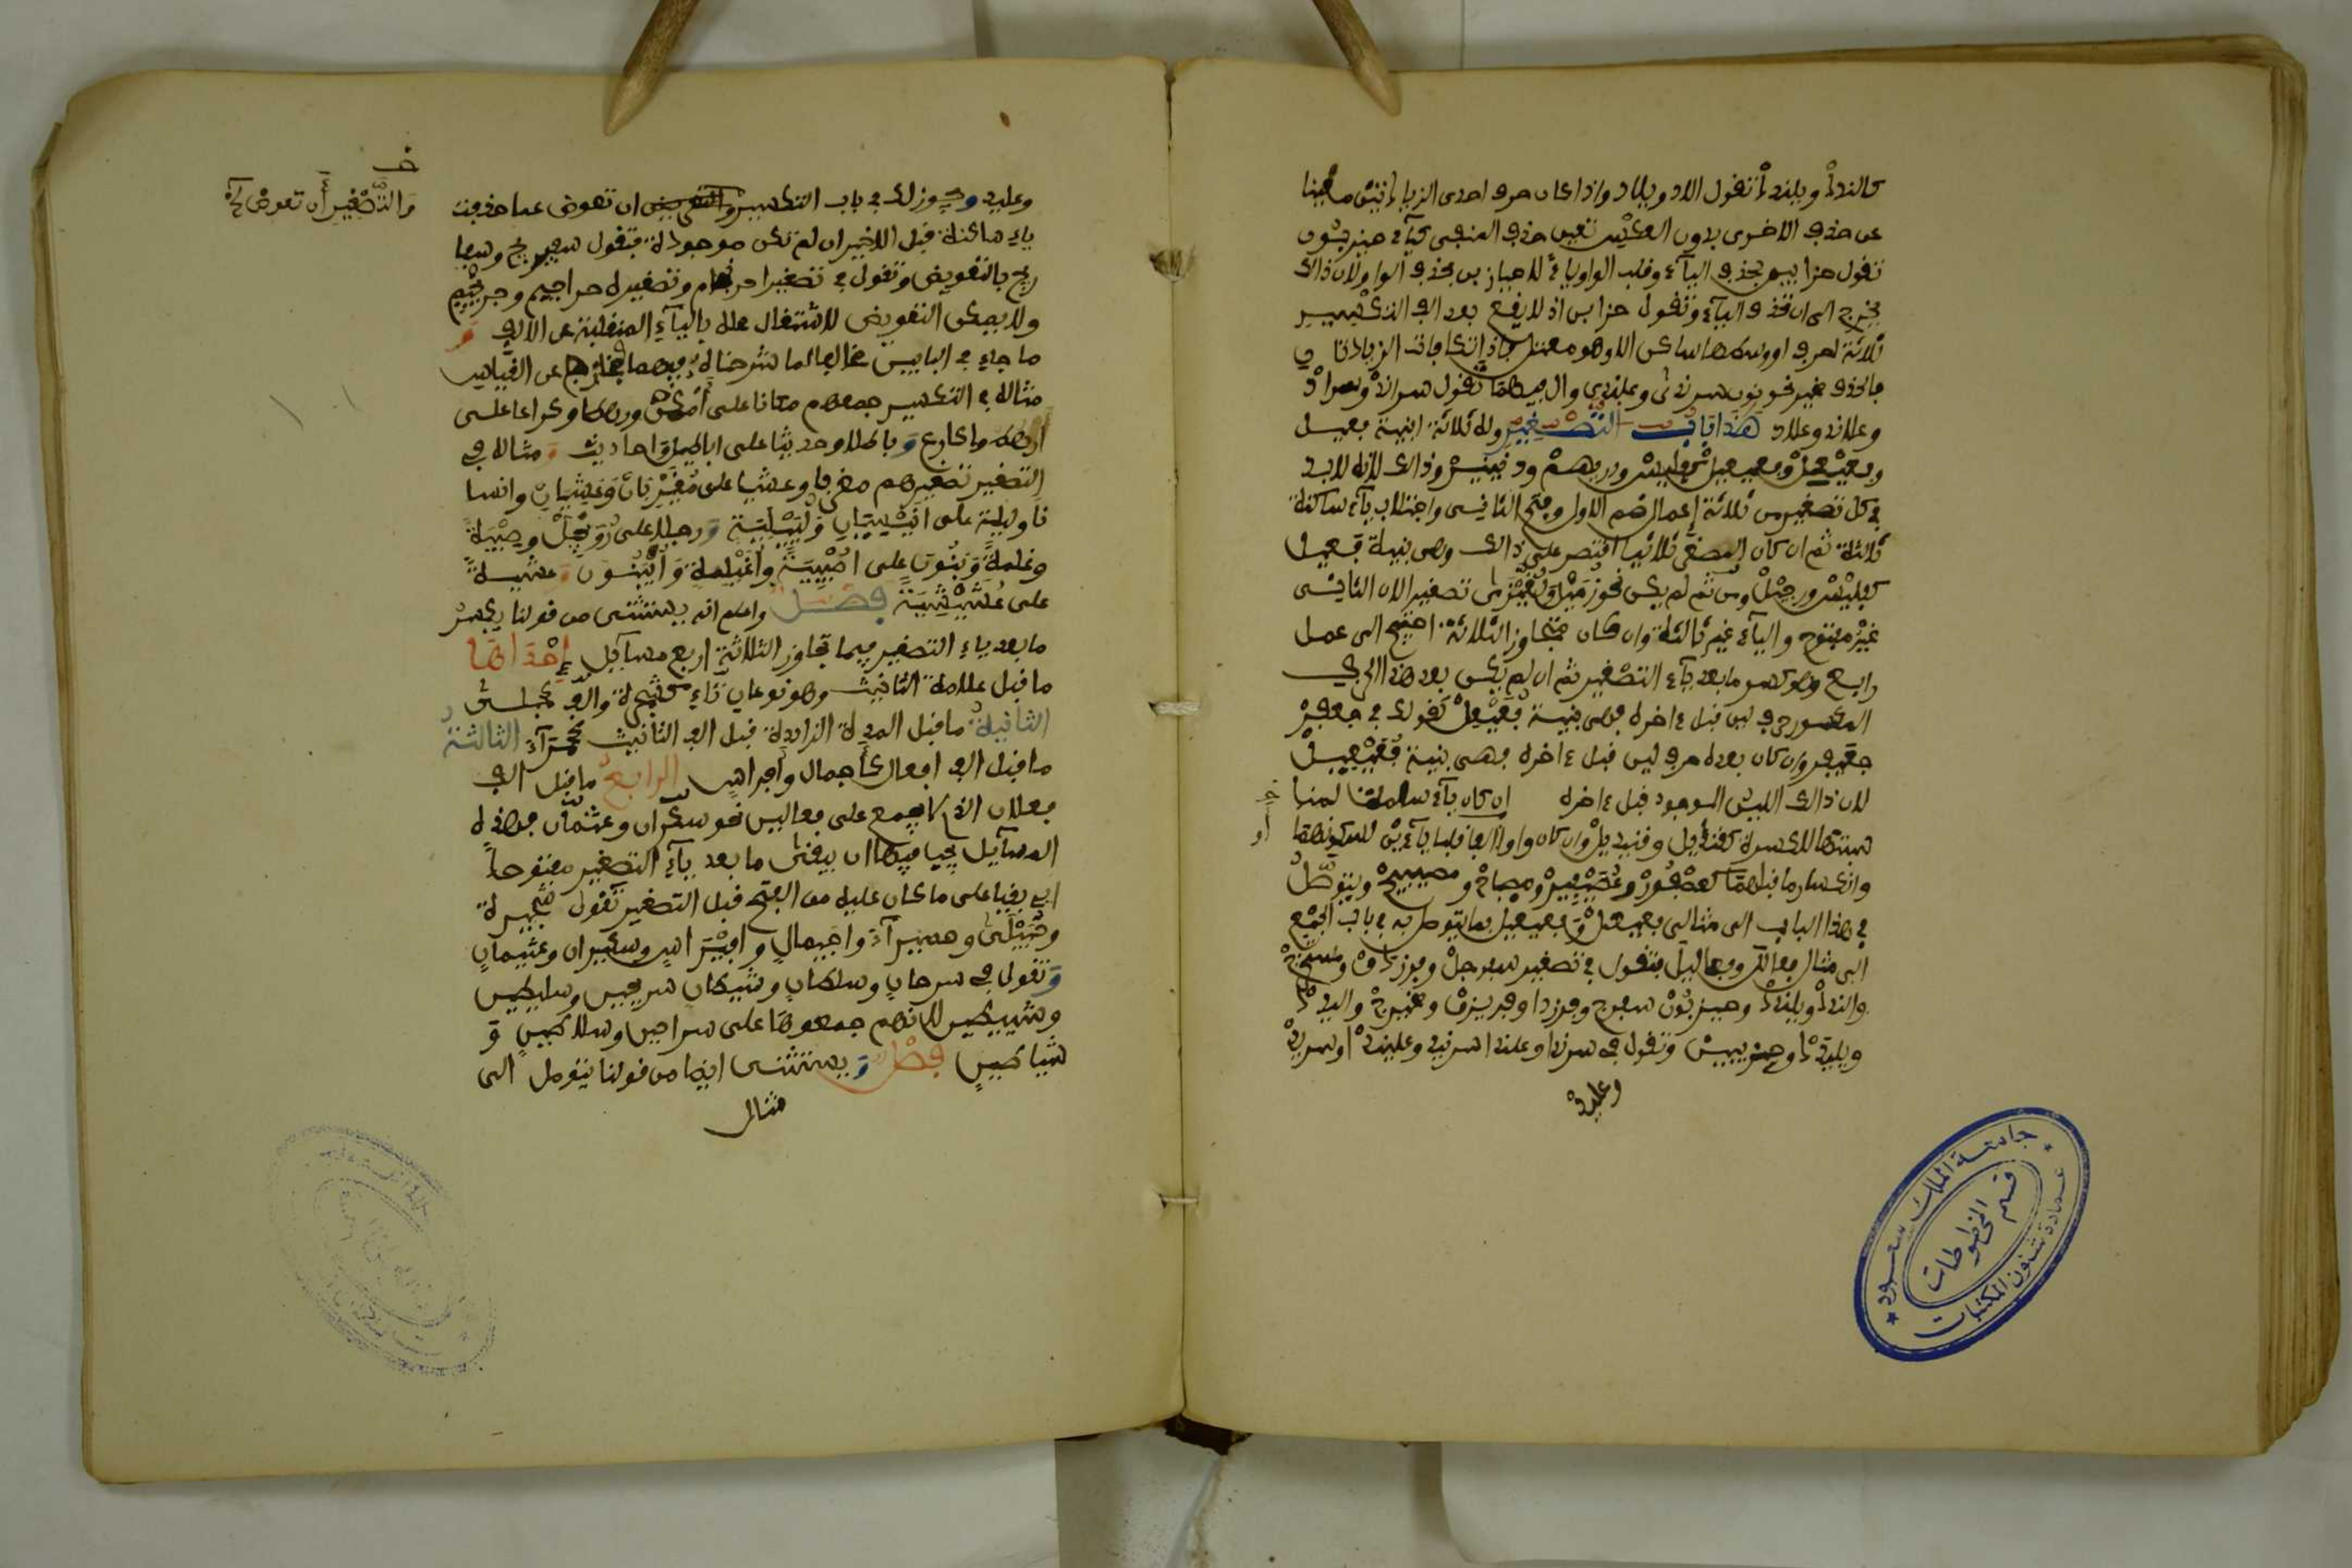 كالندد ويلندد تقول الاد ويلاد واذا كان حرف احدى الزيادتين مغنيا
عن حذف الاخرى بدون العكس تعين حذف المغنى كياء حيزبون
تقول حزابين بحذف الياء وقلب الواو ياء لا حيازبن بحذف الواو لان ذالك
يحوج الى ان تحذف الياء وتقول حزابن اذ لا يقع بعد الف التكسير
ثلاثة احرف اوسطها ساكن الا وهو معتل فان تكافات الزيادتان
فالحذف مخير نحو نون سرندى وعلندى والفيهما تقول سراند وسراد
وعلاند وعلاد هذا باب التصغير وله ثلاثة ابنية فعيل
وفعيعل وفعيعيل كفليس ودريهم ودنينير وذالك لانه لابد
في كل تصغير من ثلاثة اعمال ضم الاول وفتح الثاني واجتلاب ياء ساكنة
ثالثة ثم ان كان المصغر ثلاثيا اقتصر على ذالك وهي بنية فعيل
كفليس ورجيل ومن ثم لم يكن نحو زميل ولغيزى تصغيرا لان الثاني
غير مفتوح والياء غير ثالثة وان كان متجاوز الثلاثة احتيج الى عمل
رابع وهو كسر ما بعد ياء التصغير ثم ان لم يكن بعد هذا الحرف
المكسور حرف لين قبل ءاخره فهي بنية فعيعل كقولك في جعفر
جعيفر وان كان بعده حرف لين قبل ءاخره فهي بنية فعيعيل
لان ذالك اللين الموجود قبل ءاخره ان كان ياء سلمت لمنا
سبتها للكسرة كقنديل وقنيديل وان كان واوا او الفا قلبا ياءين لسكونهما
وانكسار ما قبلهما كعصفور وعصيفير ومصباح ومصيبيح ويتوصل
في هذا الباب الى مثالى فعيعل وفعيعيل بما يتوصل به في باب الجمع
الى مثال فعالل وفعاليل فتقول في تصغير سفرجل وفرزدق ومستخرج
والندد ويلندد وحيزبون سفيرج وفريزد او فريزق ومخيرج واليد
ويليد وحزيبين وتقول في سرندى وعلندى سريند وعليند او سريد
وعليد
او
وعليد ويجوز لك في باب التكسير ان تعوض مما حذفت
والتصغير أن تعوض
ياء ساكنة قبل الاخير ان لم تكن موجودة فتقول سفيريج وسفا
ريج بالتعويض وتقول في تصغير احرنجام وتصغيره حراجيم وحريجيم
ولا يمكن التعويض لاشتغال محله بالياء المنقلبة عن الالف و
ما جاء في البابين مخالفا لما شرحناه فيهما فخارج عن القياس
مثاله في التكسير جمعهم مكانا على أمكن ورهطا وكراعا على
اراهط واكارع وباطلا وحديثا على اباطيل واحاديث ومثاله في
التصغير تصغيرهم مغربا وعشيا على مغيربان وعشيان وانسا
نا وليلة على انيسيان ولييلية ورجلا على رويجل وصبية
وغلمة وبنون على اصيبية واغيلمة وابينون وعشية
على عشيشية فصل واعلم انه يستثنى من قولنا يكسر
ما بعد ياء التصغير فيما تجاوز الثلاثة اربع مسايل إحداها
ما قبل علامة التانيث وهو نوعان تاء كشجرة والف كحبلى
الثانية ما قبل المدة الزايدة قبل الف التانيث كحمرآء الثالثة
ما قبل الف افعال كأجمال وأفراس الرابعة ما قبل الف
فعلان الذي لا يجمع على فعالين نحو سكران وعثمان فهذه
المسآيل يجب فيها ان يبقى ما بعد يآء التصغير مفتوحا
اي يبقى على ما كان عليه من الفتح قبل التصغير تقول شجيرة
وحبيلى وحميرآء واجيمال وافيراس وسكيران وعثيمان
وتقول في سرحان وسلطان وشيطان سريحين وسليطين
وشييطين لانهم جمعوها على سراحين وسلاطين و
شياطين فصل ويستثنى ايضا من قولنا يتوصل الى
مثال
جامعة الملك سعود
قسم المخطوطات
عمادة شئون المكتبات